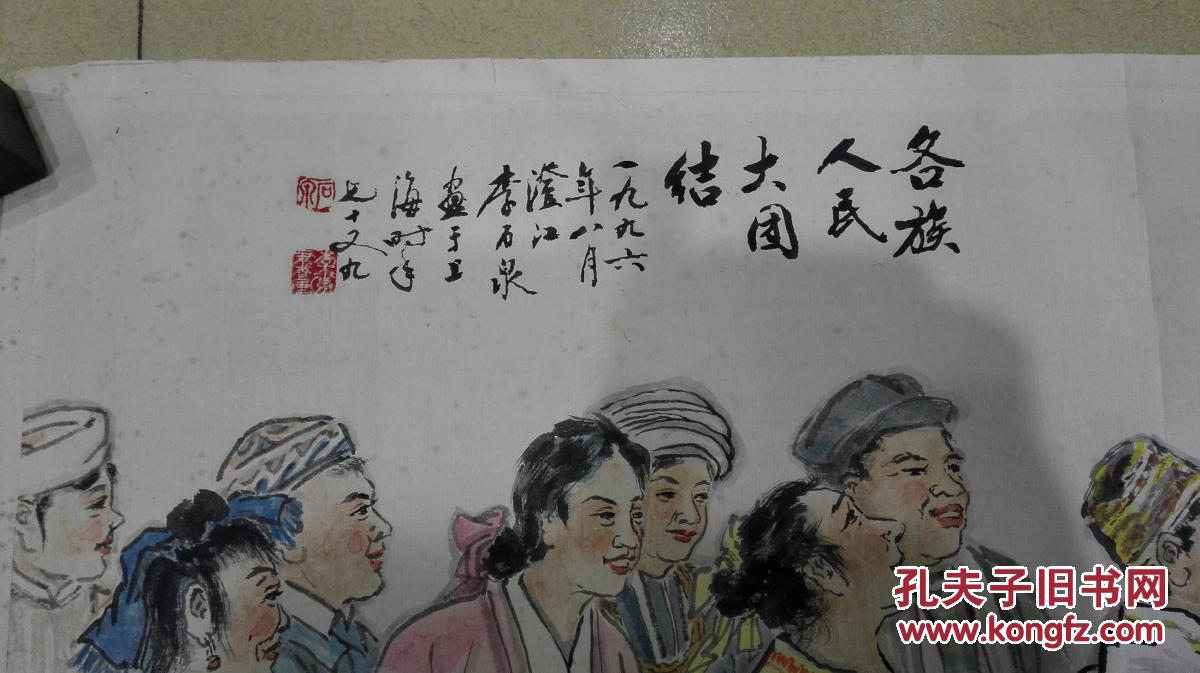 各族
人民
大团
结
一九九六
年八月
澄江
李石泉
画于上
海时年
七十又九
石泉
孔夫子旧书网
www.kongfz.com